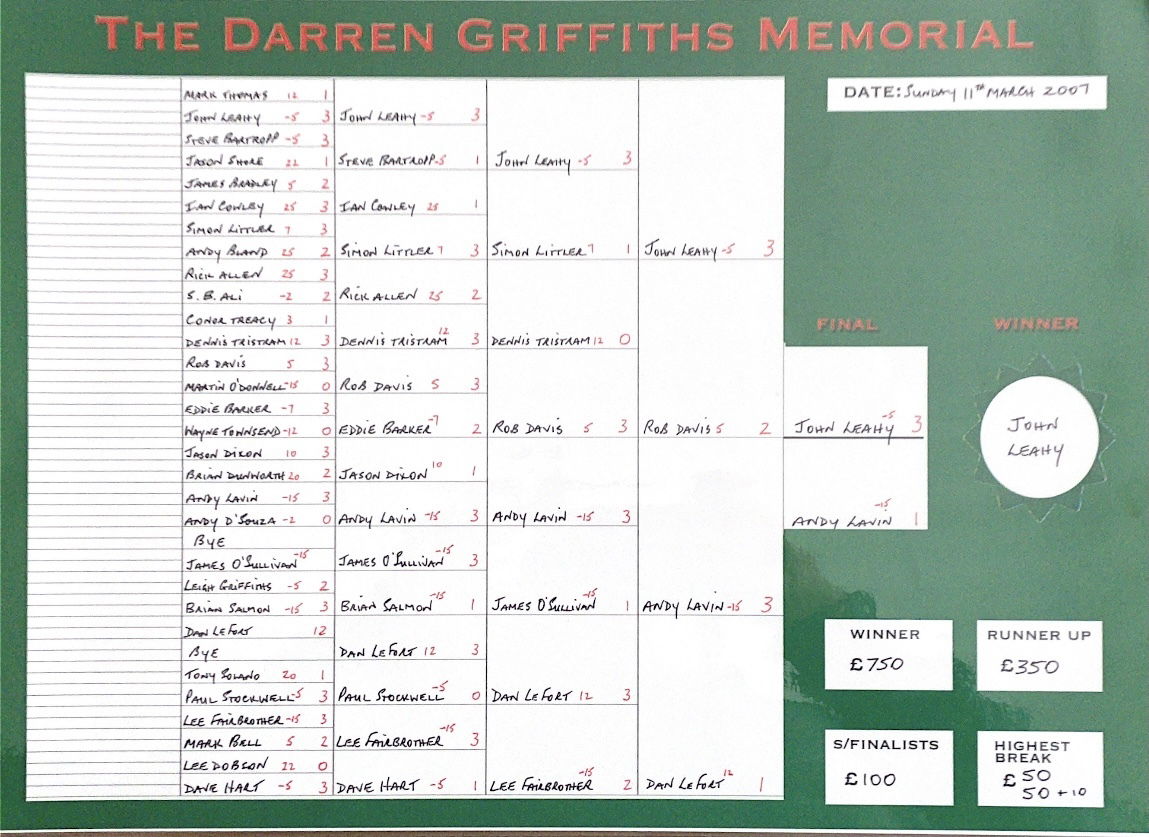 THE DARREN GRIFFITHS MEMORIAL
DATE: SUNDAY 11TH MARCH 2007
MARK THOMAS 12 1
JOHN LEAHY -5 3
STEVE BARTROPP -5 3
JASON SHORE 22 1
JAMES BRADLEY 5 2
IAN COWLEY 25 3
SIMON LITTLER 7 3
ANDY BLAND 25 2
RICK ALLEN 25 3
S. B. ALI -2 2
CONOR TREACY 3 1
DENNIS TRISTRAM 12 3
ROB DAVIS 5 3
MARTIN O'DONNELL -15 0
EDDIE BARKER -7 3
WAYNE TOWNSEND -12 0
JASON DIXON 10 3
BRIAN DUNWORTH 20 2
ANDY LAVIN -15 3
ANDY D'SOUZA -2 0
BYE
JAMES O'SULLIVAN -15
LEIGH GRIFFITHS -5 2
BRIAN SALMON -15 3
DAN LEFORT 12
BYE
TONY SOLANO 20 1
PAUL STOCKWELL -5 3
LEE FAIRBROTHER -15 3
MARK BELL 5 2
LEE DOBSON 22 0
DAVE HART -5 3
JOHN LEAHY -5 3
STEVE BARTROPP -5 1
IAN COWLEY 25 1
SIMON LITTLER 7 3
RICK ALLEN 25 2
DENNIS TRISTRAM 12 3
ROB DAVIS 5 3
EDDIE BARKER -7 2
JASON DIXON 10 1
ANDY LAVIN -15 3
JAMES O'SULLIVAN -15 3
BRIAN SALMON -15 1
DAN LEFORT 12 3
PAUL STOCKWELL -5 0
LEE FAIRBROTHER -15 3
DAVE HART -5 1
JOHN LEAHY -5 3
SIMON LITTLER 7 1
DENNIS TRISTRAM 12 0
ROB DAVIS 5 3
ANDY LAVIN -15 3
JAMES O'SULLIVAN -15 1
DAN LEFORT 12 3
LEE FAIRBROTHER -15 2
JOHN LEAHY -5 3
ROB DAVIS 5 2
ANDY LAVIN -15 3
DAN LEFORT 12 1
FINAL
JOHN LEAHY -5 3
ANDY LAVIN -15 1
WINNER
JOHN
LEAHY
WINNER
£750
RUNNER UP
£350
S/FINALISTS
£100
HIGHEST
BREAK
£50
50 + 10